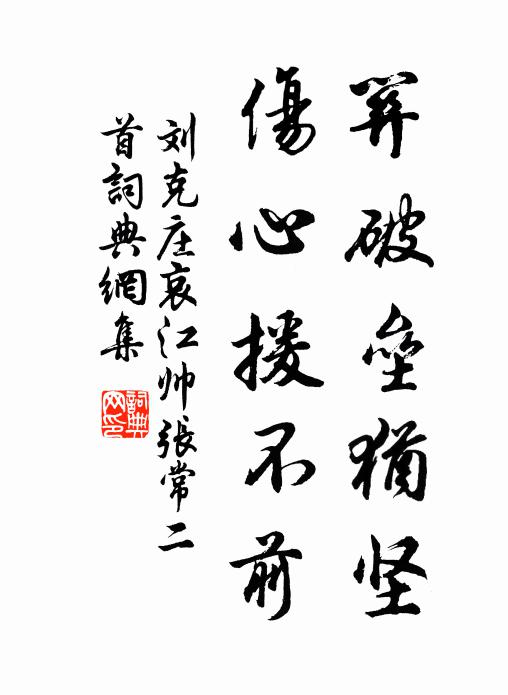 破垒猶坚
傷心援不前
刘克庄哀江帅張常二
首詞典網集
詞典
网印